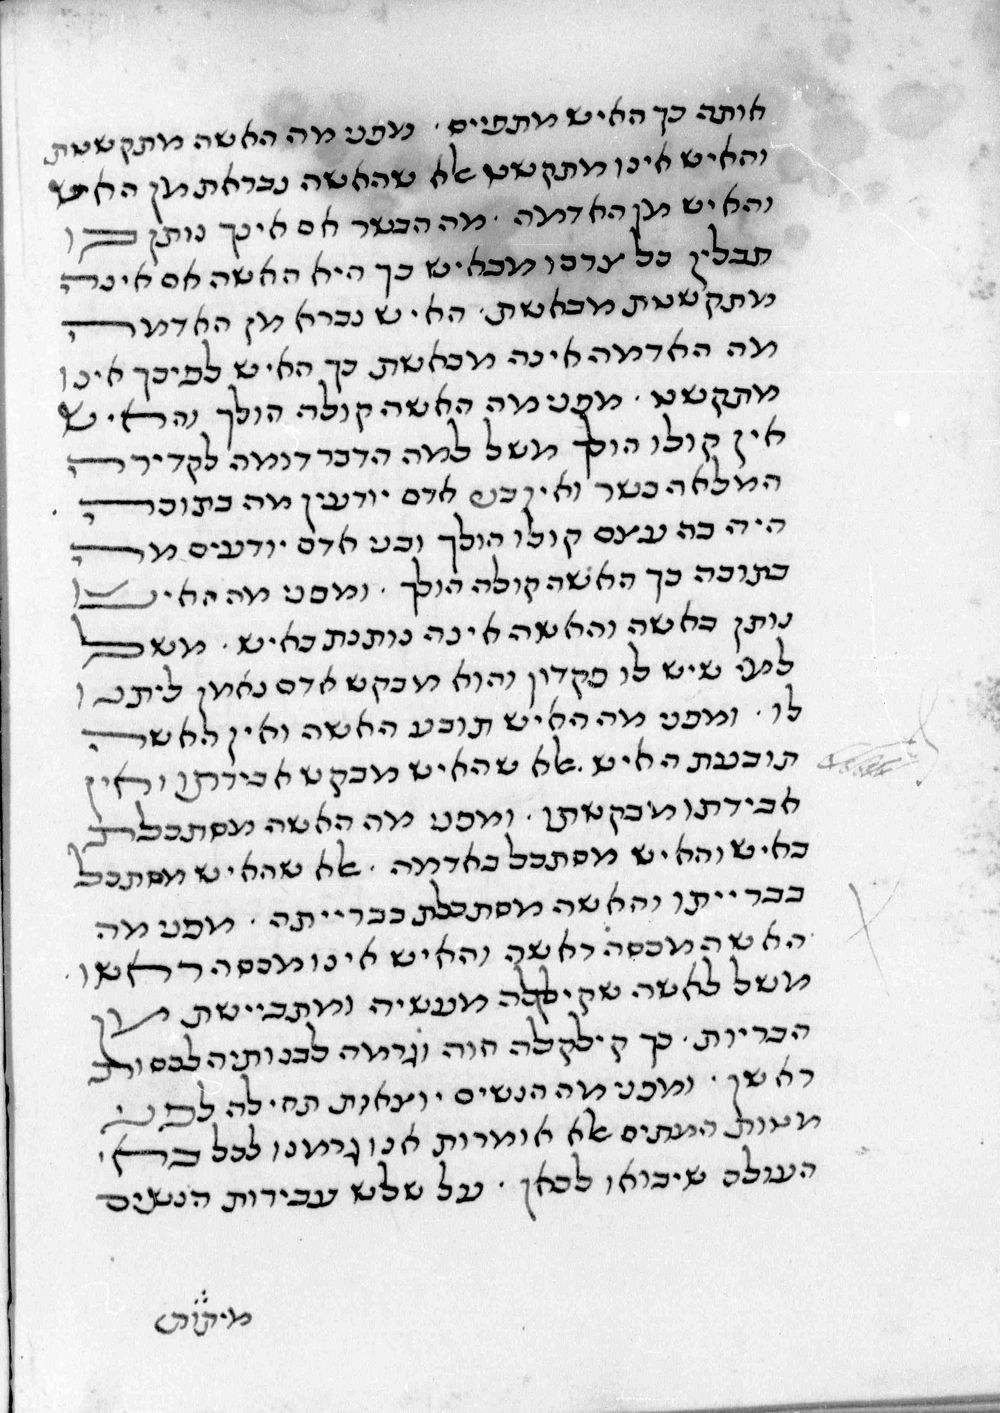 אותה כך האיש מתפייס · מפני מה האשה מתקשטת
והאיש אינו מתקשט אלא שהאשה נבראת מן האיש
והאיש מן האדמה · מה הבשר אם אינך נותן בו
תבלין כל צרכו מבאיש כך היא האשה אם אינה
מתקשטת מבאשת · האיש נברא מן האדמה
מה האדמה אינה מבאשת כך האיש לפיכך אינו
מתקשט · מפני מה האשה קולה הולך והאיש
אין קולו הולך משל למה הדבר דומה לקדירה
המלאה בשר ואין בני אדם יודעין מה בתוכה ·
היה בה עצם קולו הולך ובני אדם יודעים מה
בתוכה כך האשה קולה הולך · ומפני מה האיש
נותן באשה והאשה אינה נותנת באיש · משל
למי שיש לו פקדון והוא מבקש אדם נאמן ליתנו
לו · ומפני מה האיש תובע האשה ואין האשה
תובעת האיש · אלא שהאיש מבקש אבידתו ואין
אבידתו מבקשתו · ומפני מה האשה מסתכלת
באיש והאיש מסתכל באדמה · אלא שהאיש מסתכל
בברייתו והאשה מסתכלת בברייתה · מפני מה
האשה מכסה ראשה והאיש אינו מכסה ראשו ·
משל לאשה שקילקלה מעשיה ומתביישת מן
הבריות · כך קילקלה חוה וגרמה לבנותיה לכסות
ראשן · ומפני מה הנשים יוצאות תחילה לפני
מטות המתים אלא אומרות אנו גרמנו לכל באי
העולם שיבואו לכאן · על שלש עבירות הנשים